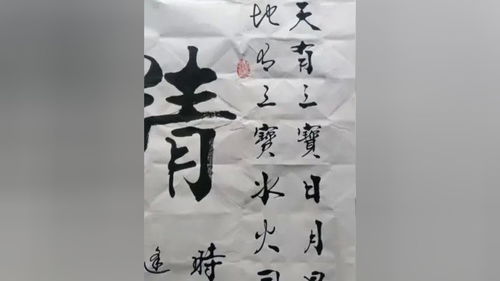 天有三寶日月
地有三寶水火
時
逢